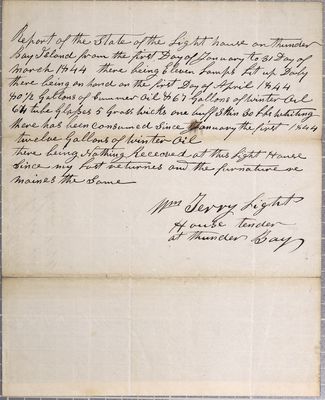 Report of the State of the Light house on thunder
Bay Island from the first Day of January to 31 Day of
March 1844 there being Eleven Lamps Lit up Daly
there being on hand on the first Day of April 1844
Gallons of Summer Oil & 67 Gallons of Winter Oil
64 tube glasses 5 Gross wicks one buff Skin 30 lbs whiting
there has been Consumed Since January the first 1844
twelve Gallons of Winter Oil
there being Nothing Received at this Light House
Since my Last returnes and the furnature re
maines the Same
Wm Terry Light
House tender
at thunder Bay